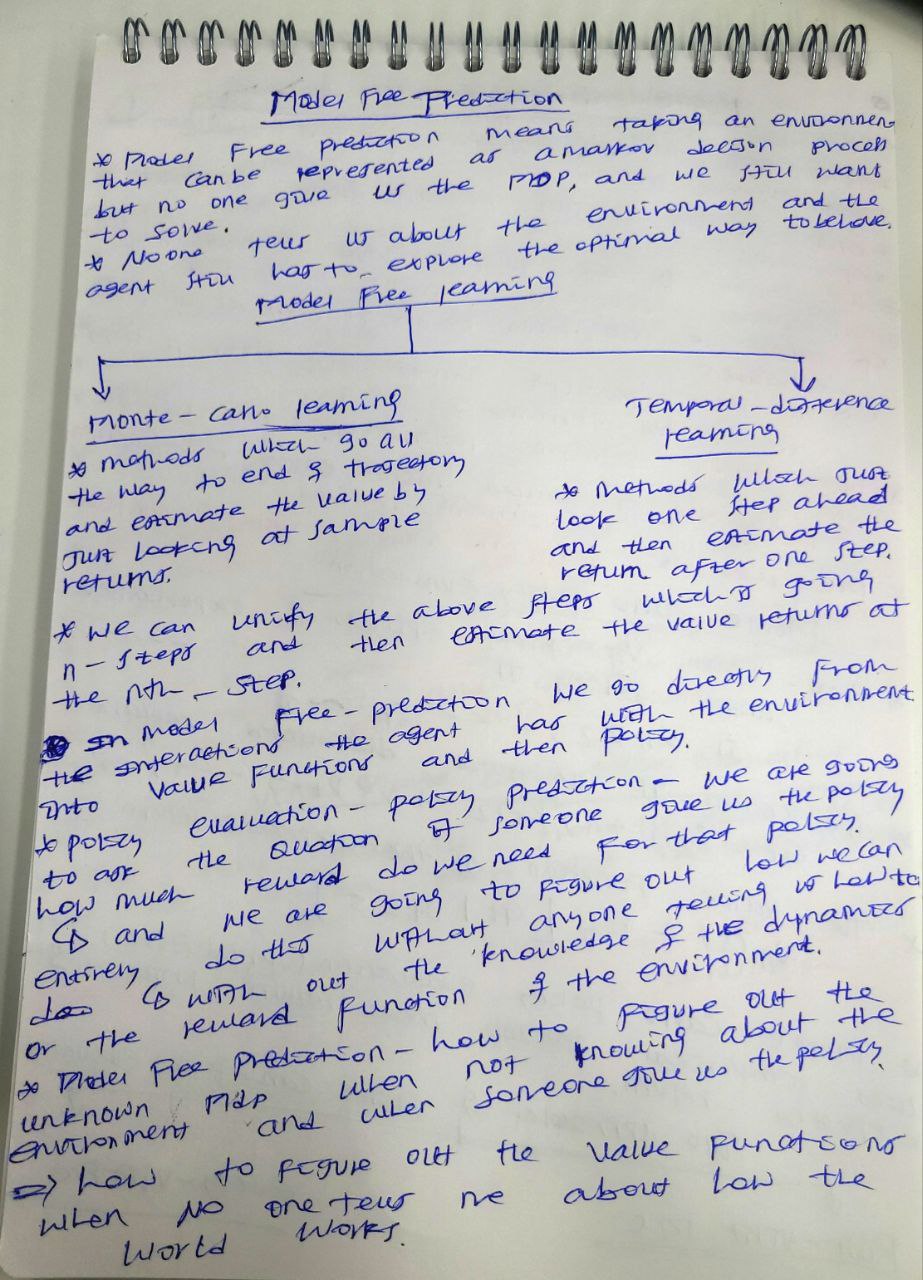 Model Free Prediction
* Model Free prediction means taking an environmen
that can be represented as a markov decison process
but no one give us the MDP, and we still want
to solve.
* No one tells us about the environment and the
agent still has to explore the optimal way to behave.
Model Free learning
Monte - Carlo learning
* methods which go all
the way to end of trajectory
and estimate the value by
Just looking at sample
returns.
Temporal - difference
learning
* methods which Just
look one step ahead
and then estimate the
return after one step.
* we can unify the above steps which is going
n - steps and then estimate the value returns at
the nth - step.
* In model Free - prediction we go directly From
the interactions the agent has with the environment
into value Functions and then policy.
* policy evaluation - policy prediction - we are going
to ask the Quation if someone give us the policy
how much reward do we need For that policy.
↳ and we are going to Figure out how we can
entirely do this without anyone telling us how to
do ↳ with out the knowledge of the dynamics
or the reward Function of the environment.
* Model Free prediction - how to Figure out the
unknown Mdp when not knowing about the
environment and when someone give us the policy.
=> how to Figure out the value Functions
when No one tells me about how the
World Works.